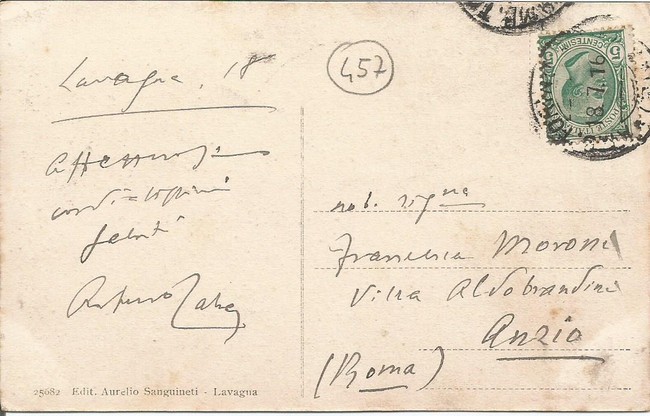 Lavagna, 18
457
cordialissimi
saluti
nob. sig.na
Francesca Moroni
Villa Aldobrandini
Anzio
(Roma)
18.7.16
CENTESIMI 5
POSTE ITALIANE
25682 Edit. Aurelio Sanguineti - Lavagna